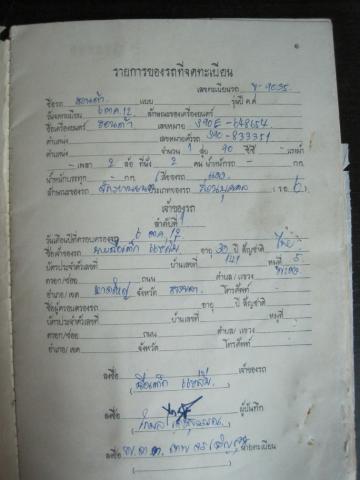 ๑
รายการของรถที่จดทะเบียน
เลขทะเบียนรถ 9035
ชื่อรถ ฮอนด้า แบบ รุ่นปี ค.ศ.
วันจดทะเบียน 6 ต.ค. 12 ลักษณะของเครื่องยนต์
ชื่อเครื่องยนต์ ฮอนด้า เลขหมาย S90E-648654
ตำแหน่ง เลขหมายตัวรถ S90-833351
ตำแหน่ง จำนวน 1 สูบ 90 ซีซี แรงม้า
เพลา 2 ล้อ ที่นั่ง 2 คน น้ำหนักรถ กก.
น้ำหนักบรรทุก กก. สี แดง
ลักษณะของรถ จักรยานยนต์ ประเภทของรถ ส่วนบุคคล (รย 6)
เจ้าของรถ
ลำดับที่ 1
วันเดือนปีที่ครอบครองรถ 6 ต.ค. 12
ชื่อเจ้าของรถ อายุ 30 ปี สัญชาติ ไทย
บัตรประจำตัวเลขที่ บ้านเลขที่ 141 หมู่ที่ 5
ตรอก/ซอย ถนน ตำบล/แขวง
อำเภอ/เขต หาดใหญ่ จังหวัด สงขลา โทรศัพท์
ชื่อผู้ครอบครองรถ อายุ ปี สัญชาติ
บัตรประจำตัวเลขที่ บ้านเลขที่ หมู่ที่
ตรอก/ซอย ถนน ตำบล/แขวง
อำเภอ/เขต จังหวัด โทรศัพท์
ลงชื่อ เจ้าของรถ
ลงชื่อ ผู้บันทึก
ลงชื่อ นายทะเบียน